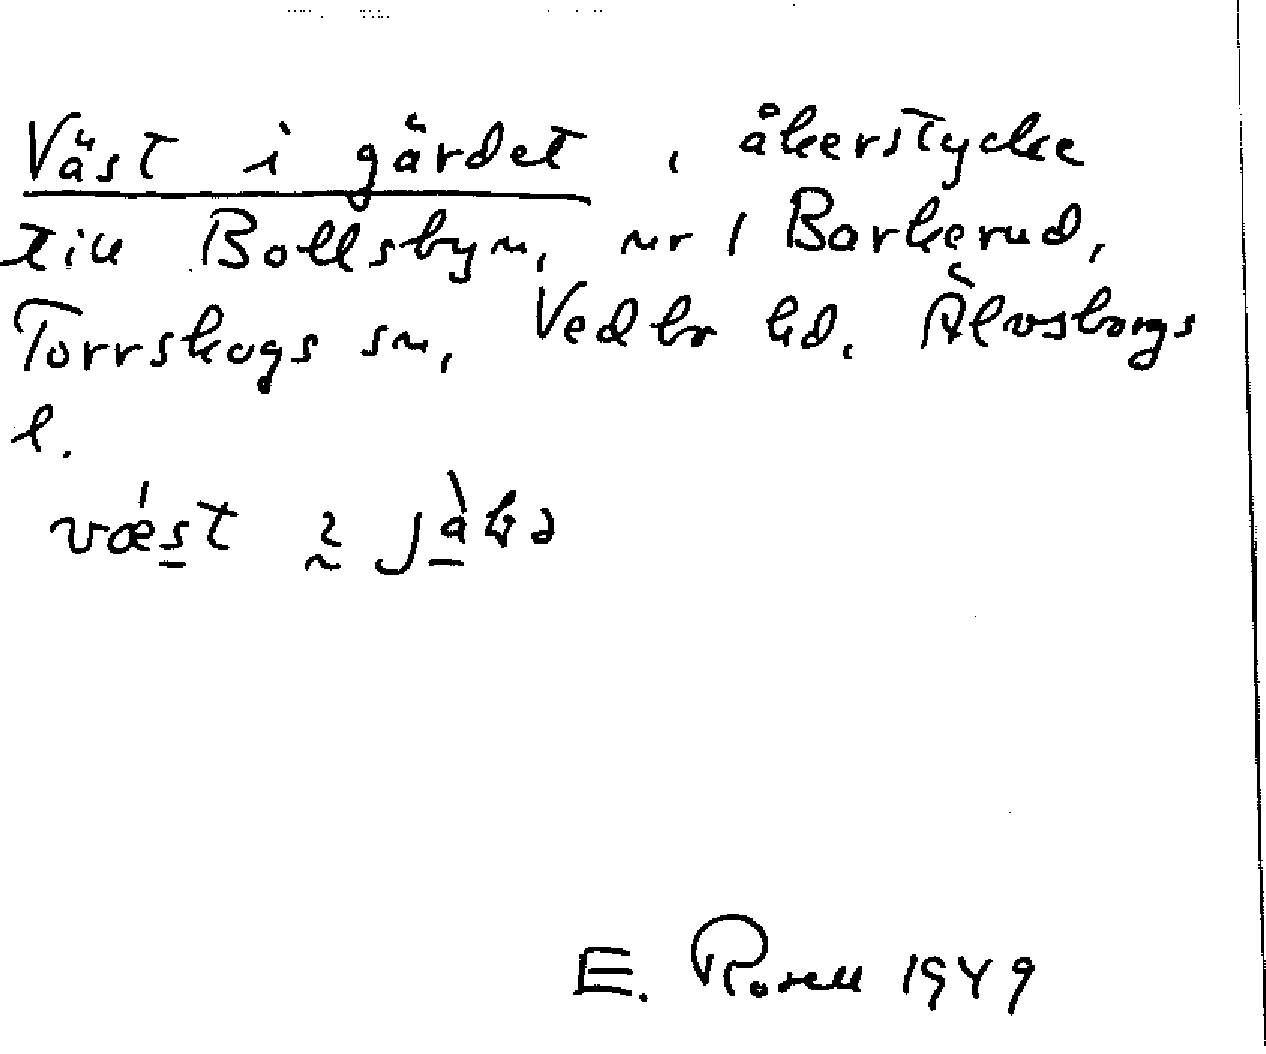 Väst i gärdet, åkerstycke
till Bollsbyn, nr 1 Borkerud,
Torrskogs sn, Vedbo hd. Älvsborgs
l.
E. Rosell 1949